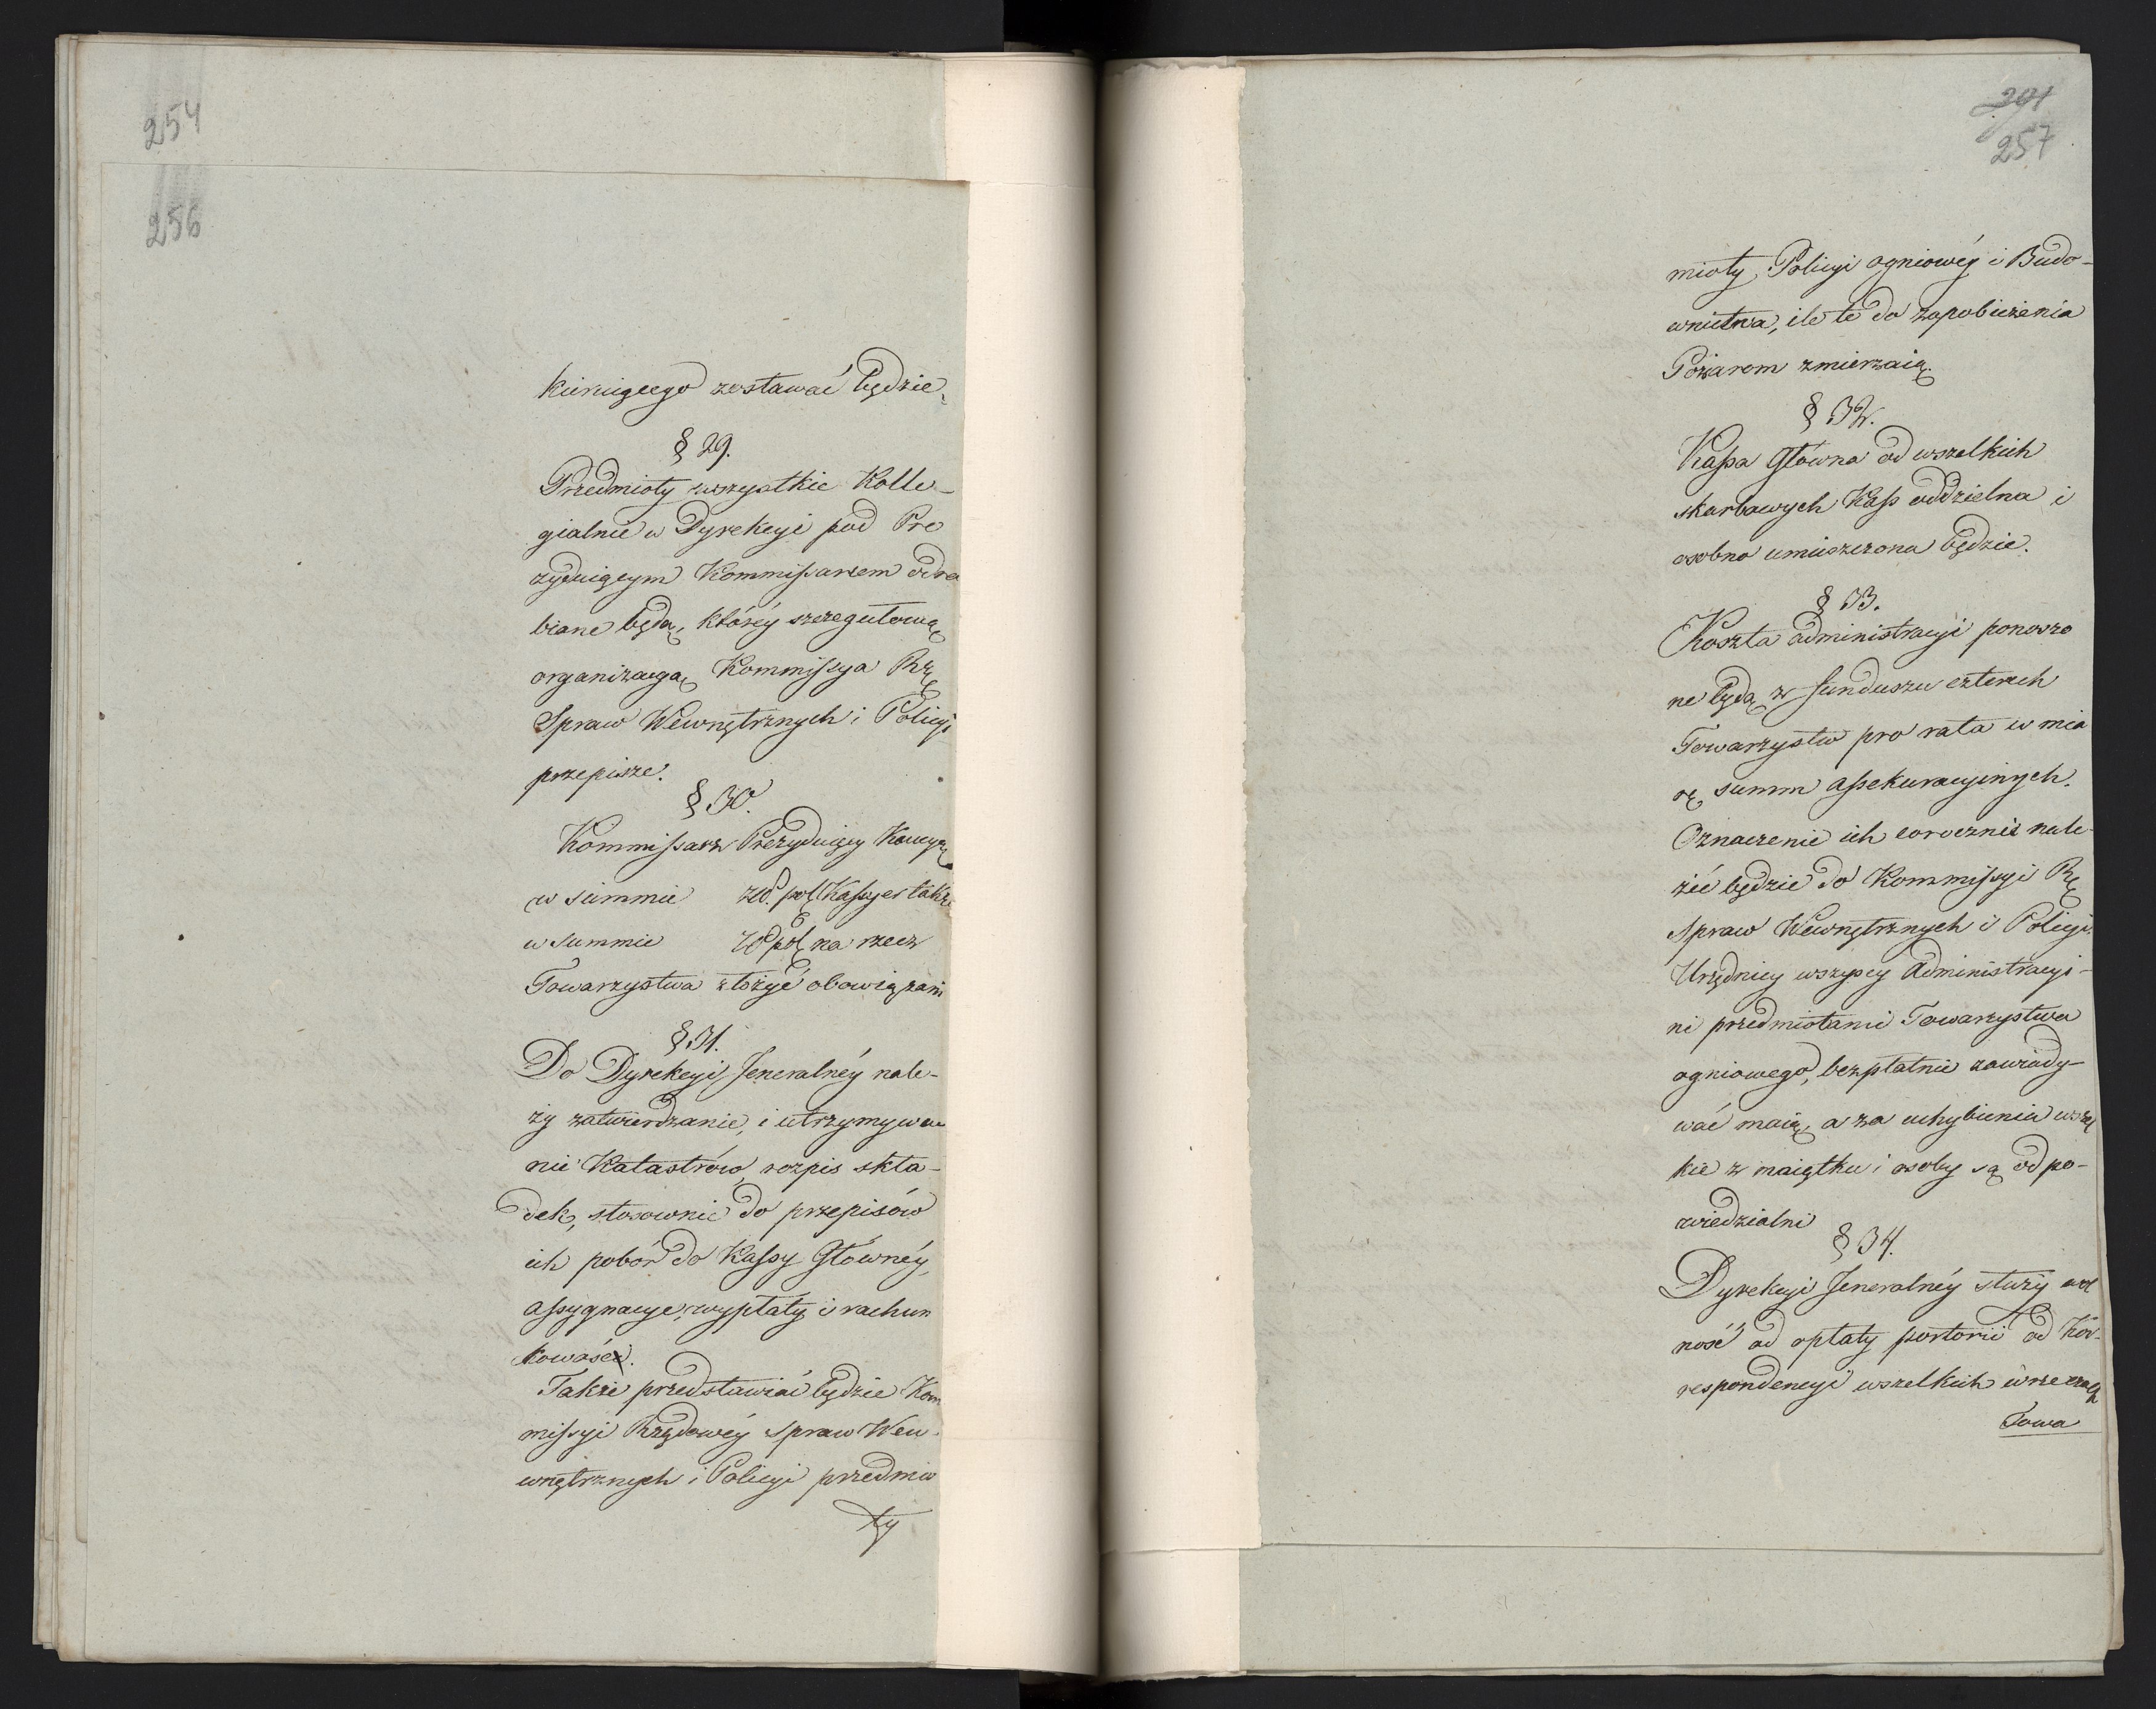 254
256
kieruiącego zostawać będzie.
§ 29.
Przedmioty wszystkie Kolle-
gialnie w Dyrekcyi pod Pre
zyduiącym Kommissarzem odra
biane będą, któréy szczegułową
organizacyą Kommissya Rzą
Spraw Wewnętrznych i Policyi
przepisze.
§ 30.
Kommissarz Prezyduiący Kaucyą
w summie złł. pol. Kassyer takż
w summie zł pol. na rzecz
Towarzystwa złożyć obowiązani
§ 31.
Do Dyrekcyi Jeneralnéy nale-
ży zatwierdzanie, i utrzymywa
nie Katastrów, rozpis skła-
dek, stosownie do przepisów
ich pobór do Kassy Głównéy,
assygnacye, wypłaty i rachun
kowość.
Także przedstawiać będzie Kom
missyi Rządowéy Spraw Wew-
wnętrznych i Policyi przedmio
ty
291
257
mioty, Policyi ogniowéy i Budo-
wnictwa, ile te do zapobieżenia
Pożarom zmierzaią.
§ 32.
Kassa Główna od wszelkich
skarbowych Kass oddzielna i
osobno umieszczona będzie.
§ 33.
Koszta administracyi ponoszo
ne będą z funduszu czterech
Towarzystw pro rata w mia
rę summ assekuracyinych.
Oznaczenie ich corocznie nale-
żeć będzie do Kommissyi Rzą
Spraw Wewnętrznych i Policyi.
Urzędnicy wszyscy Administracyi-
ni przedmiotami Towarzystwa
ogniowego, bezpłatnie zawiady-
wać maią, a za uchybienia wszel
kie z maiątku i osoby są odpo-
wiedzialni
§ 34.
Dyrekcyi Jeneralnéy służy wol
ność od opłaty portorii od Kor-
respondencyi wszelkich w rzeczach
Towa